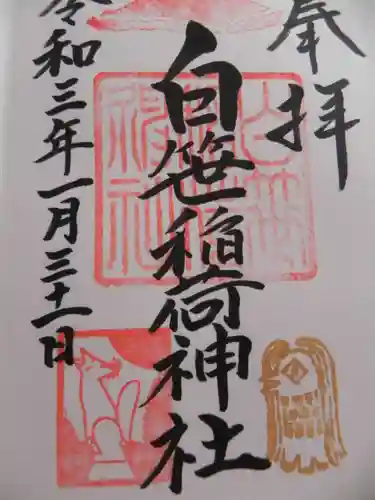 奉拝
白笹稲荷神社
令和三年一月三十一日